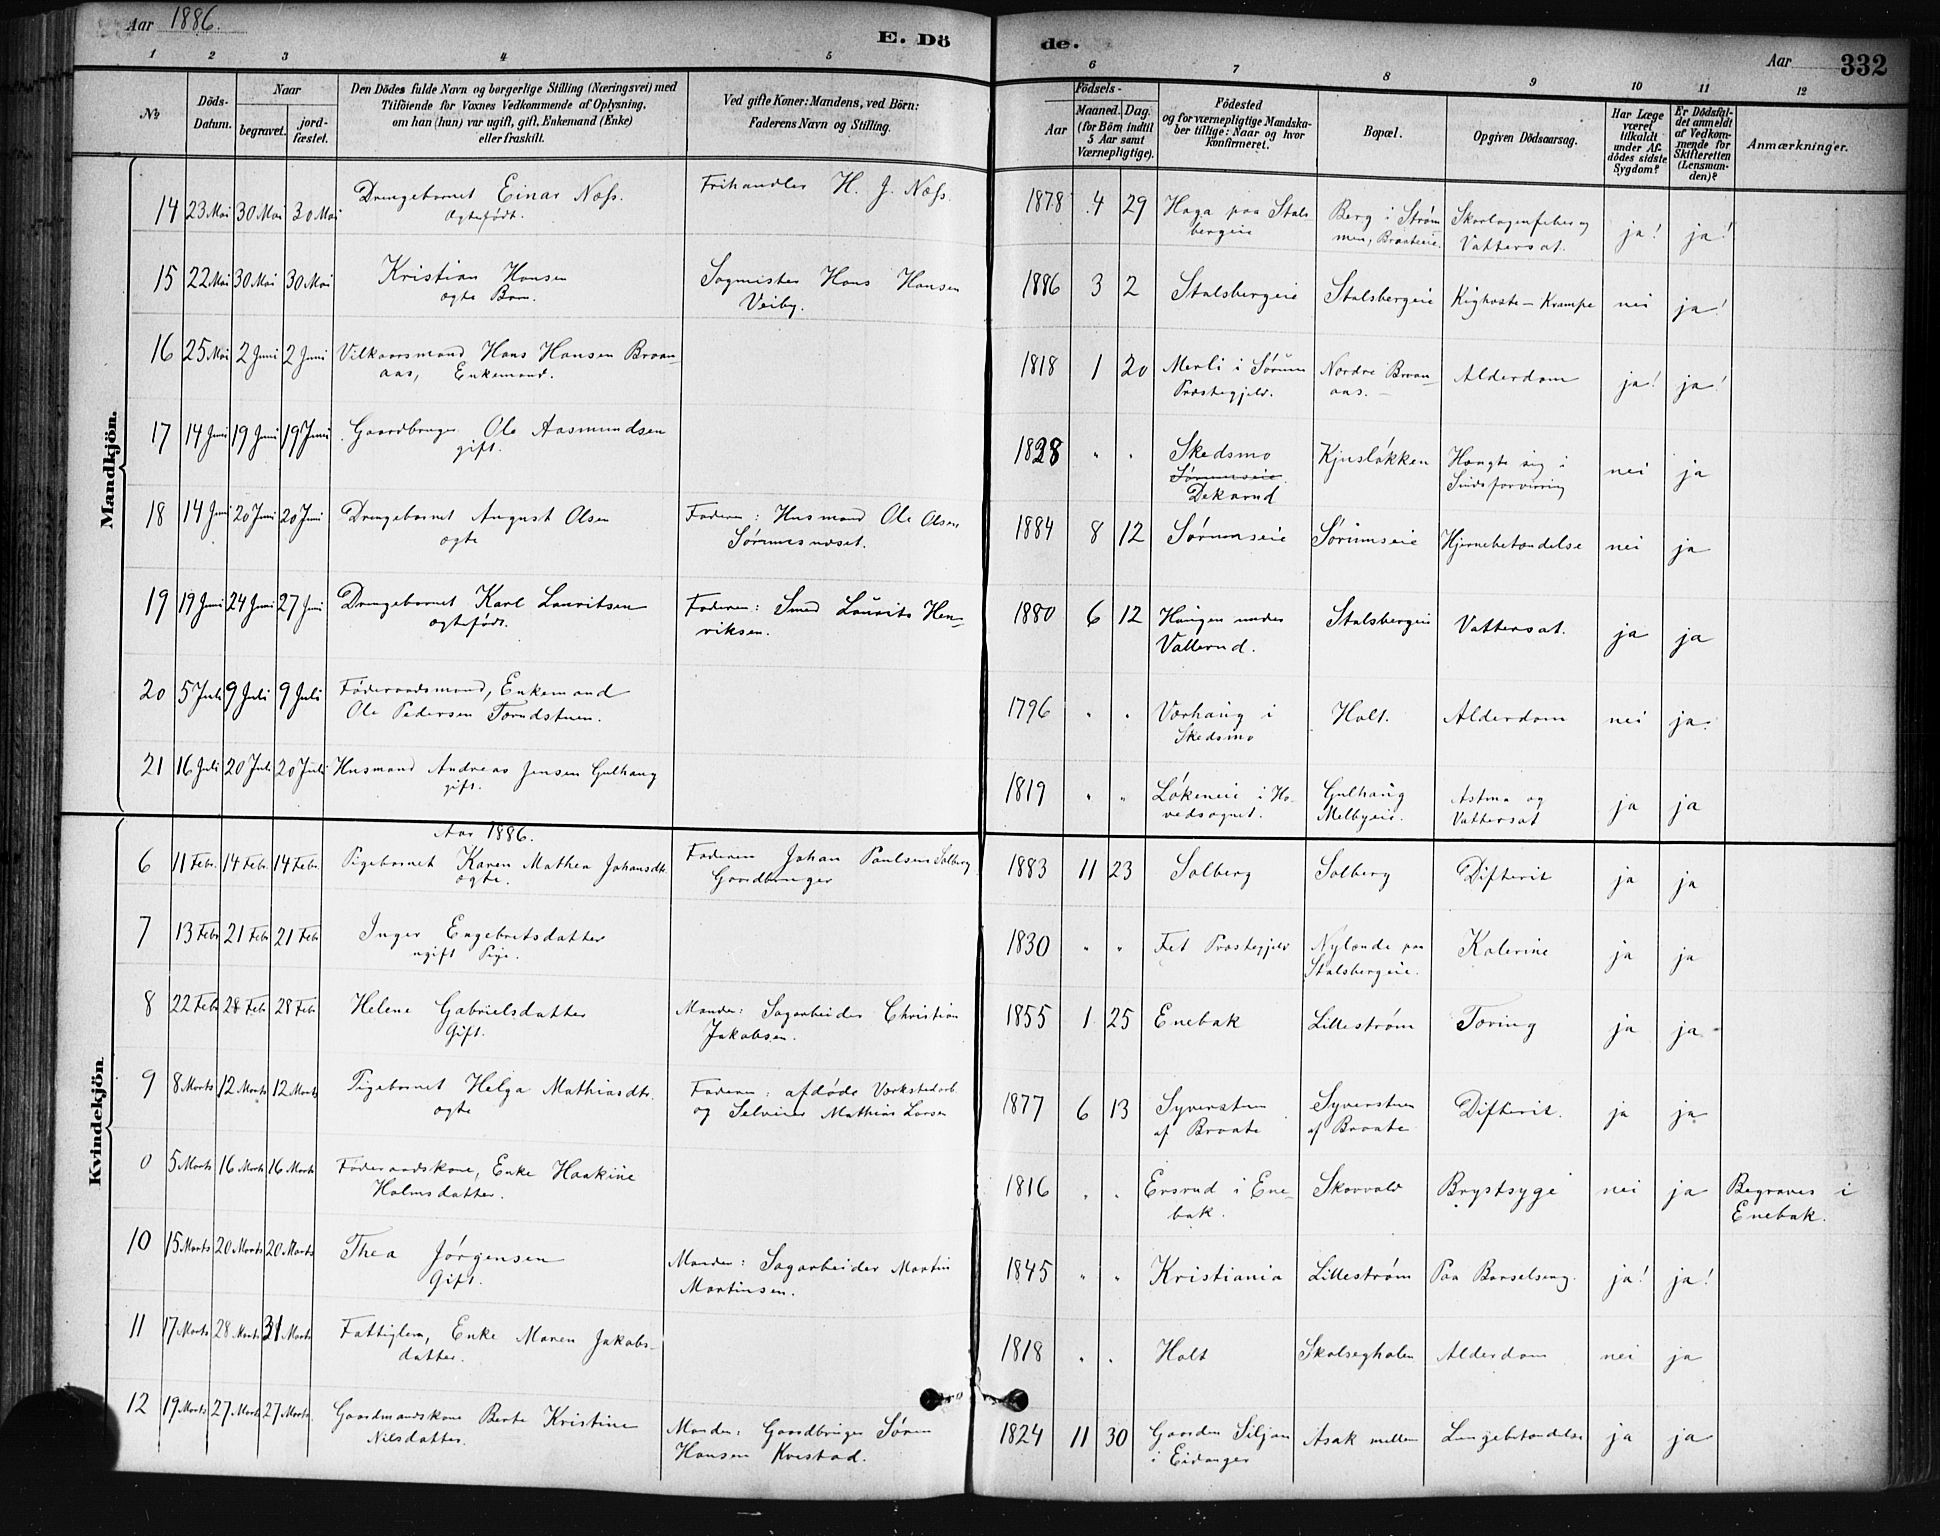 Aar 1886.
E. Dö
de.
Aar
332
1 2 3 4 5
6 7 8 9 10 11 12
No
Döds-
Datum.
Naar
begravet.
jord-
fæstet.
Den Dödes fulde Navn og borgerlige Stilling (Næringsvei) med
Tilföiende for Voxnes Vedkommende af Oplysning,
om han (hun) var ugift, gift, Enkemand (Enke)
eller fraskilt.
Ved gifte Koner: Mandens, ved Börn:
Faderens Navn og Stilling.
Födsels-
Aar
Maaned. Dag.
(for Börn indtil
5 Aar samt
Værnepligtige).
Födested
og for værnepligtige Mandska-
ber tillige: Naar og hvor
konfirmeret.
Bopæl.
Opgiven Dödsaarsag.
Har Læge
været
tilkaldt
under Af-
dödes sidste
Sygdom?
Er Dödsfal-
det anmeldt
af Vedkom-
mende for
Skifteretten
(Lensman-
den)?
Anmærkninger.
Mandkjön.
14 23 Mai 30 Mai 30 Mai Drengebarnet Einar Næss. Frihandler H. J. Næss. 1878 4 29 Haga paa Stals Berg i Strøm Skarlagensfeber og ja! ja!
ægtefödt. bergeie men, Braateeie. Vattersot.
15 22 Mai 30 Mai 30 Mai Kristian Hansen Sagmester Hans Hansen 1886 3 2 Stalsbergeie Stalsbergeie Kighoste – Krampe nei ja!
ægte Barn. Veiby.
16 25 Mai 2 Juni 2 Juni Vilkaarsmand Hans Hansen Braan- 1818 1 20 Merli i Sørum Nordre Braan- Alderdom ja! ja!
aas, Enkemand. Præstegjeld. aas.
17 14 Juni 19 Juni 19 Juni Gaardbruger Ole Aasmundsen 1828 " " Skedsmo Kjusløkken Hængte sig i nei ja
gift. Sørumseie Sindsforvirring
Dekarud
18 14 Juni 20 Juni 20 Juni Drengebarnet August Olsen Faderen: Husmand Ole Olsen 1884 8 12 Sørumseie Sørumseie Hjernebetændelse nei ja
ægte Sørumsnæset.
19 19 Juni 24 Juni 27 Juni Drengebarnet Karl Lauritsen Faderen: Smed Laurits Hen- 1880 6 12 Haugen under Stalsbergeie Vattersot. ja ja
ægtefödt. riksen. Vallerud.
20 5 Juli 9 Juli 9 Juli Föderaadsmand, Enkemand 1796 " " Vorhaug i Holt. Alderdom nei ja.
Ole Pedersen Torudstuen. Skedsmo
21 16 Juli 20 Juli 20 Juli Husmand Andreas Jensen Gulhaug 1819 " " Løkeneie i Ho- Gulhaug Astma og ja ja
gift. vedsognet. Melbyeie. Vattersot
Kvindekjön
Aar 1886.
6 11 Febr. 14 Febr. 14 Febr. Pigebarnet Karen Mathea Johansdtr. Faderen Johan Paulsen Solberg 1883 11 23 Solberg Solberg Difterit ja ja
ægte. Gaardbruger
7 13 Febr 21 Febr 21 Febr Inger Engebretsdatter 1830 " " Fet Præstegjeld Nylande paa Kolerine ja ja
ugift Pige. Stalsbergeie.
8 22 Febr 28 Febr 28 Febr Helene Gabrielsdatter Manden: Sagarbeider Christian 1855 1 25 Enebak Lillestrøm Tæring ja ja
Gift. Jakobsen.
9 8 Marts 12 Marts 12 Marts Pigebarnet Helga Mathiasdtr. Faderen: afdøde Værkstedarb. 1877 6 13 Syverstuen Syverstuen Difterit. ja ja
ægte og Selveier Mathias Larsen af Braate af Braate
0 5 Marts 16 Marts 16 Marts Föderaadskone, Enke Haakine 1816 " " Ersrud i Ene- Skovvald Brystsyge nei ja Begraves i
Holmsdatter. bak. Enebak.
10 15 Marts 20 Marts 20 Marts Thea Jörgensen Manden: Sagarbeider Martin 1845 " " Kristiania Lillestrøm Paa Barselseng. ja! ja!
Gift. Martinsen.
11 17 Marts 28 Marts 31 Marts Fattiglem, Enke Maren Jakobs- 1818 " " Holt Skolsegholen Alderdom nei ja
datter.
12 19 Marts 27 Marts 27 Marts. Gaardmandskone Berte Kristine Manden: Gaardbruger Søren 1824 11 30 Gaarden Siljan Asak mellem Lungebetændelse ja ja
Nilsdatter. Hansen Kvestad. i Eidanger